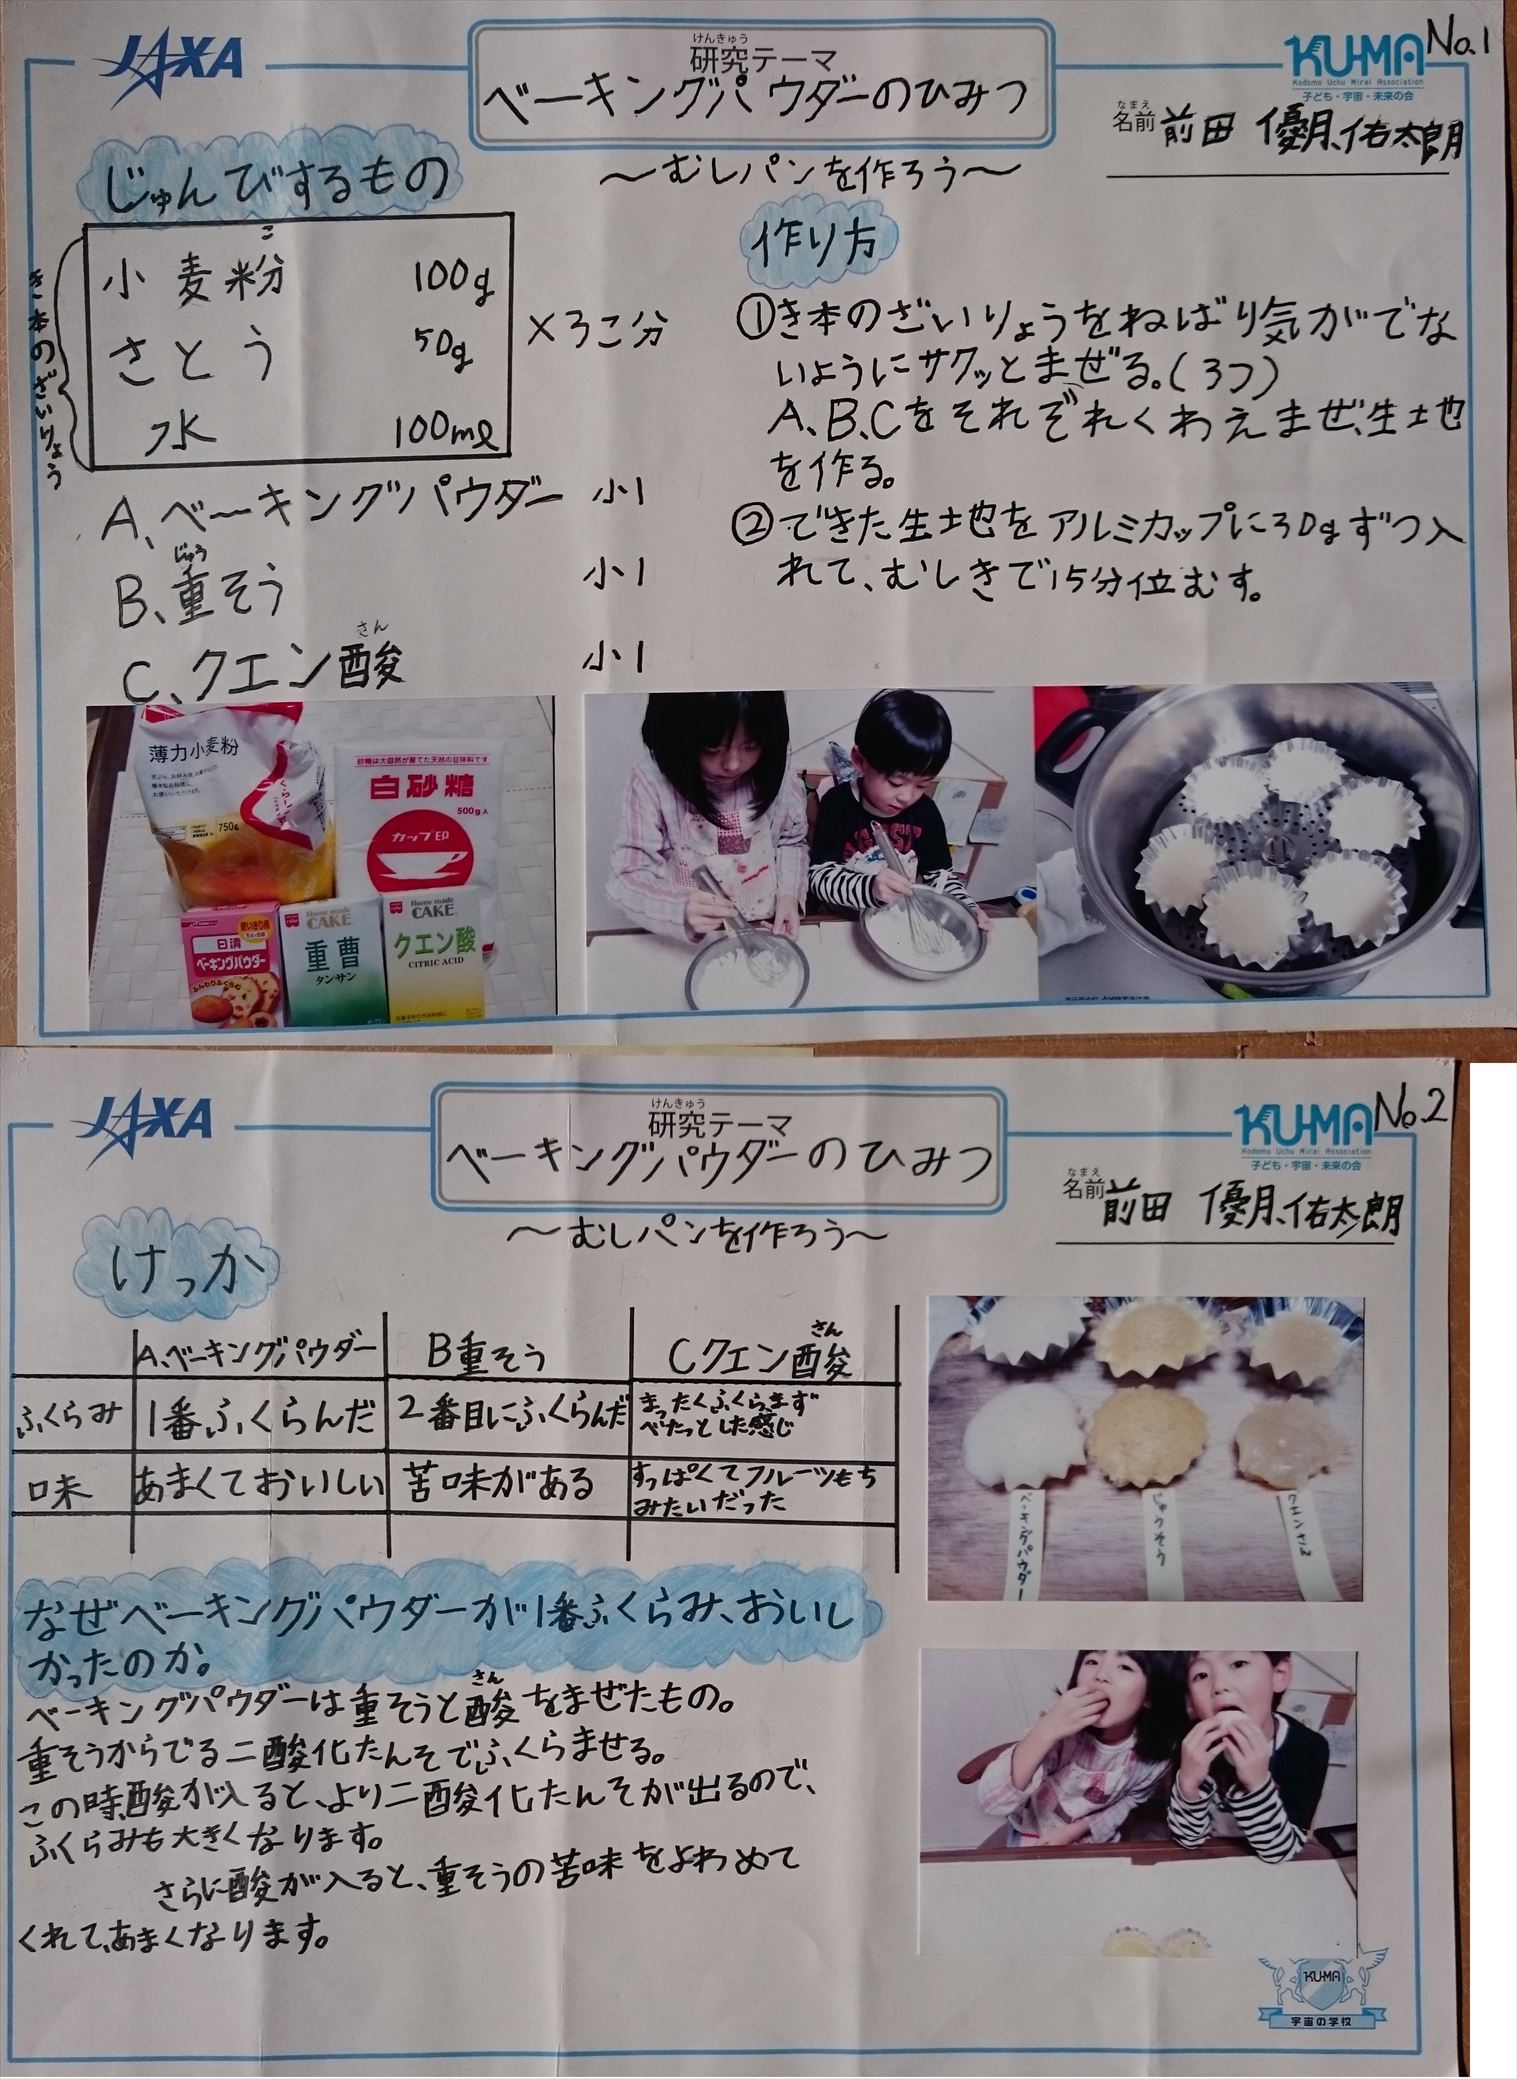 JAXA
けんきゅう
研究テーマ
ベーキングパウダーのひみつ
KU-MA
Kodomo Uchu Mirai Association
子ども・宇宙・未来の会
No.1
なまえ
名前 前田 優月、佑太朗
〜むしパンを作ろう〜
じゅんびするもの
き本のざいりょう
こ
小麦粉 100g
さとう 50g
水 100mℓ
×3こ分
A、ベーキングパウダー 小1
じゅう
B、重そう 小1
さん
C、クエン酸 小1
作り方
①き本のざいりょうをねばり気がでな
いようにサクッとまぜる。(3つ)
A、B、Cをそれぞれくわえまぜ、生地
を作る。
②できた生地をアルミカップに30gずつ入
れて、むしきで15分位むす。
薄力小麦粉
750g
砂糖は大自然が育てた天然の甘味料です
白砂糖
500g入
カップ印
日清
ベーキングパウダー
ふんわりふくらむ
Home made
CAKE
重曹
タンサン
Home made
CAKE
クエン酸
CITRIC ACID
JAXA
けんきゅう
研究テーマ
ベーキングパウダーのひみつ
KU-MA
Kodomo Uchu Mirai Association
子ども・宇宙・未来の会
No.2
なまえ
名前 前田 優月、佑太朗
〜むしパンを作ろう〜
けっか
A、ベーキングパウダー B重そう Cクエン酸
さん
ふくらみ 1番ふくらんだ 2番目にふくらんだ まったくふくらまず
べたっとした感じ
味 あまくておいしい 苦味がある すっぱくてフルーツもち
みたいだった
ベーキングパウダー
じゅうそう
クエンさん
なぜベーキングパウダーが1番ふくらみ、おいし
かったのか。
さん
ベーキングパウダーは重そうと酸をまぜたもの。
重そうからでる二酸化たんそでふくらませる。
この時、酸が入ると、より二酸化たんそが出るので、
ふくらみも大きくなります。
さらに酸が入ると、重そうの苦味をよわめて
くれて、あまくなります。
KU-MA
宇宙の学校